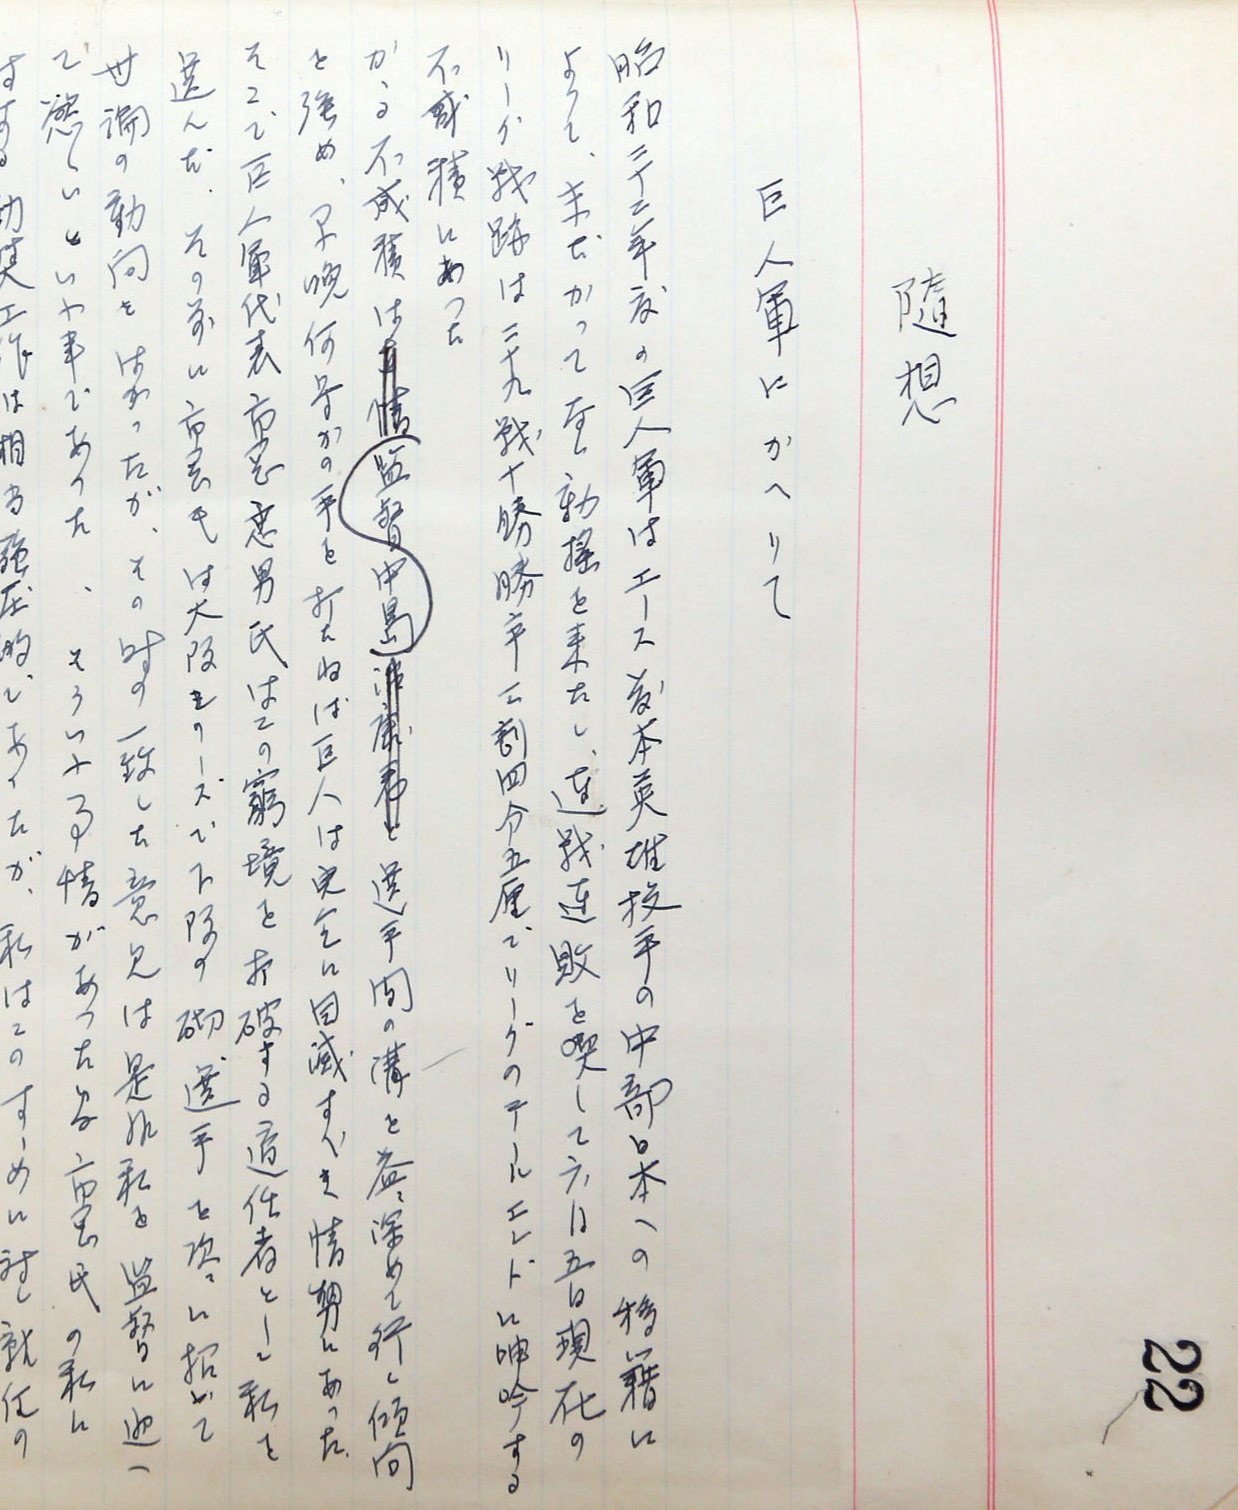 22
随想
巨人軍にかへりて
昭和二十二年度の巨人軍はエース藤本英雄投手の中部日本への移籍に
よって、未だかって なき動揺を来たし、連戦連敗を喫して六月五日現在の
リーグ戦跡は二十九戦十勝勝率三割四分五厘でリーグのテールエンドに呻吟する
不成績にあった
かゝる不成績は監督中島と選手間の溝を益々深めて行く傾向
を強め、早晩何等かの手を打たねば巨人は完全に自滅すべき情勢にあった
そこで巨人軍代表市岡忠男氏はこの窮境を打破する適任者として私を
選んだ、その前に市岡氏は大阪シリーズで下阪の砌選手を次々に招いて
世論の動向をはかったが、その時の一致した意見は是非私を監督に迎へ
て慾しいといふ事であった、そういふ事情があった為市岡氏の私に
対する勧奨工作は相当強圧的であったが、私はこのすゝめに対し就任の